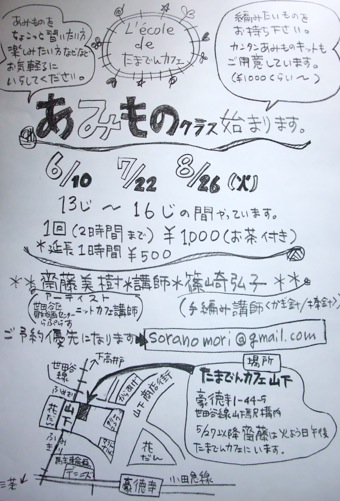 あみものを
ちょこっと習いたい方
楽しみたい方などなど
お気軽に
いらしてください。
L'école
de
たまでんカフェ
編みたいものを
お持ち下さい。
カンタンあみものキットも
ご用意しています。
(¥1000くらい〜)
あみものクラス始まります。
6/10 7/22 8/26(火)
13じ〜16じの間やっています。
1回(2時間まで)¥1000(お茶付き)
*延長1時間¥500
**齋藤美樹*講師*篠崎弘子**
アーティスト
ニットカフェ講師
(手編み講師〈かぎ針/棒針〉)
ご予約優先になります
soranomori@gmail.com
場所
たまでんカフェ山下
豪徳寺1-44-5
世田谷線山下駅横
5/27以降齋藤は火よう日午後
たまでんカフェにいます。
世田谷線
下高井戸
山下商店街
山下
花だん
ふみきり
花だん
三茶
豪徳寺
小田急線